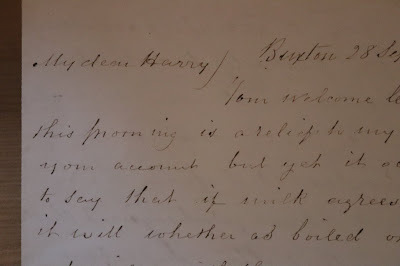 Buxton 28 Sep
My dear Harry)
Your welcome le
this morning is a relief to my
your account but yet it oc
to say that if milk agrees
it will whether as boiled or